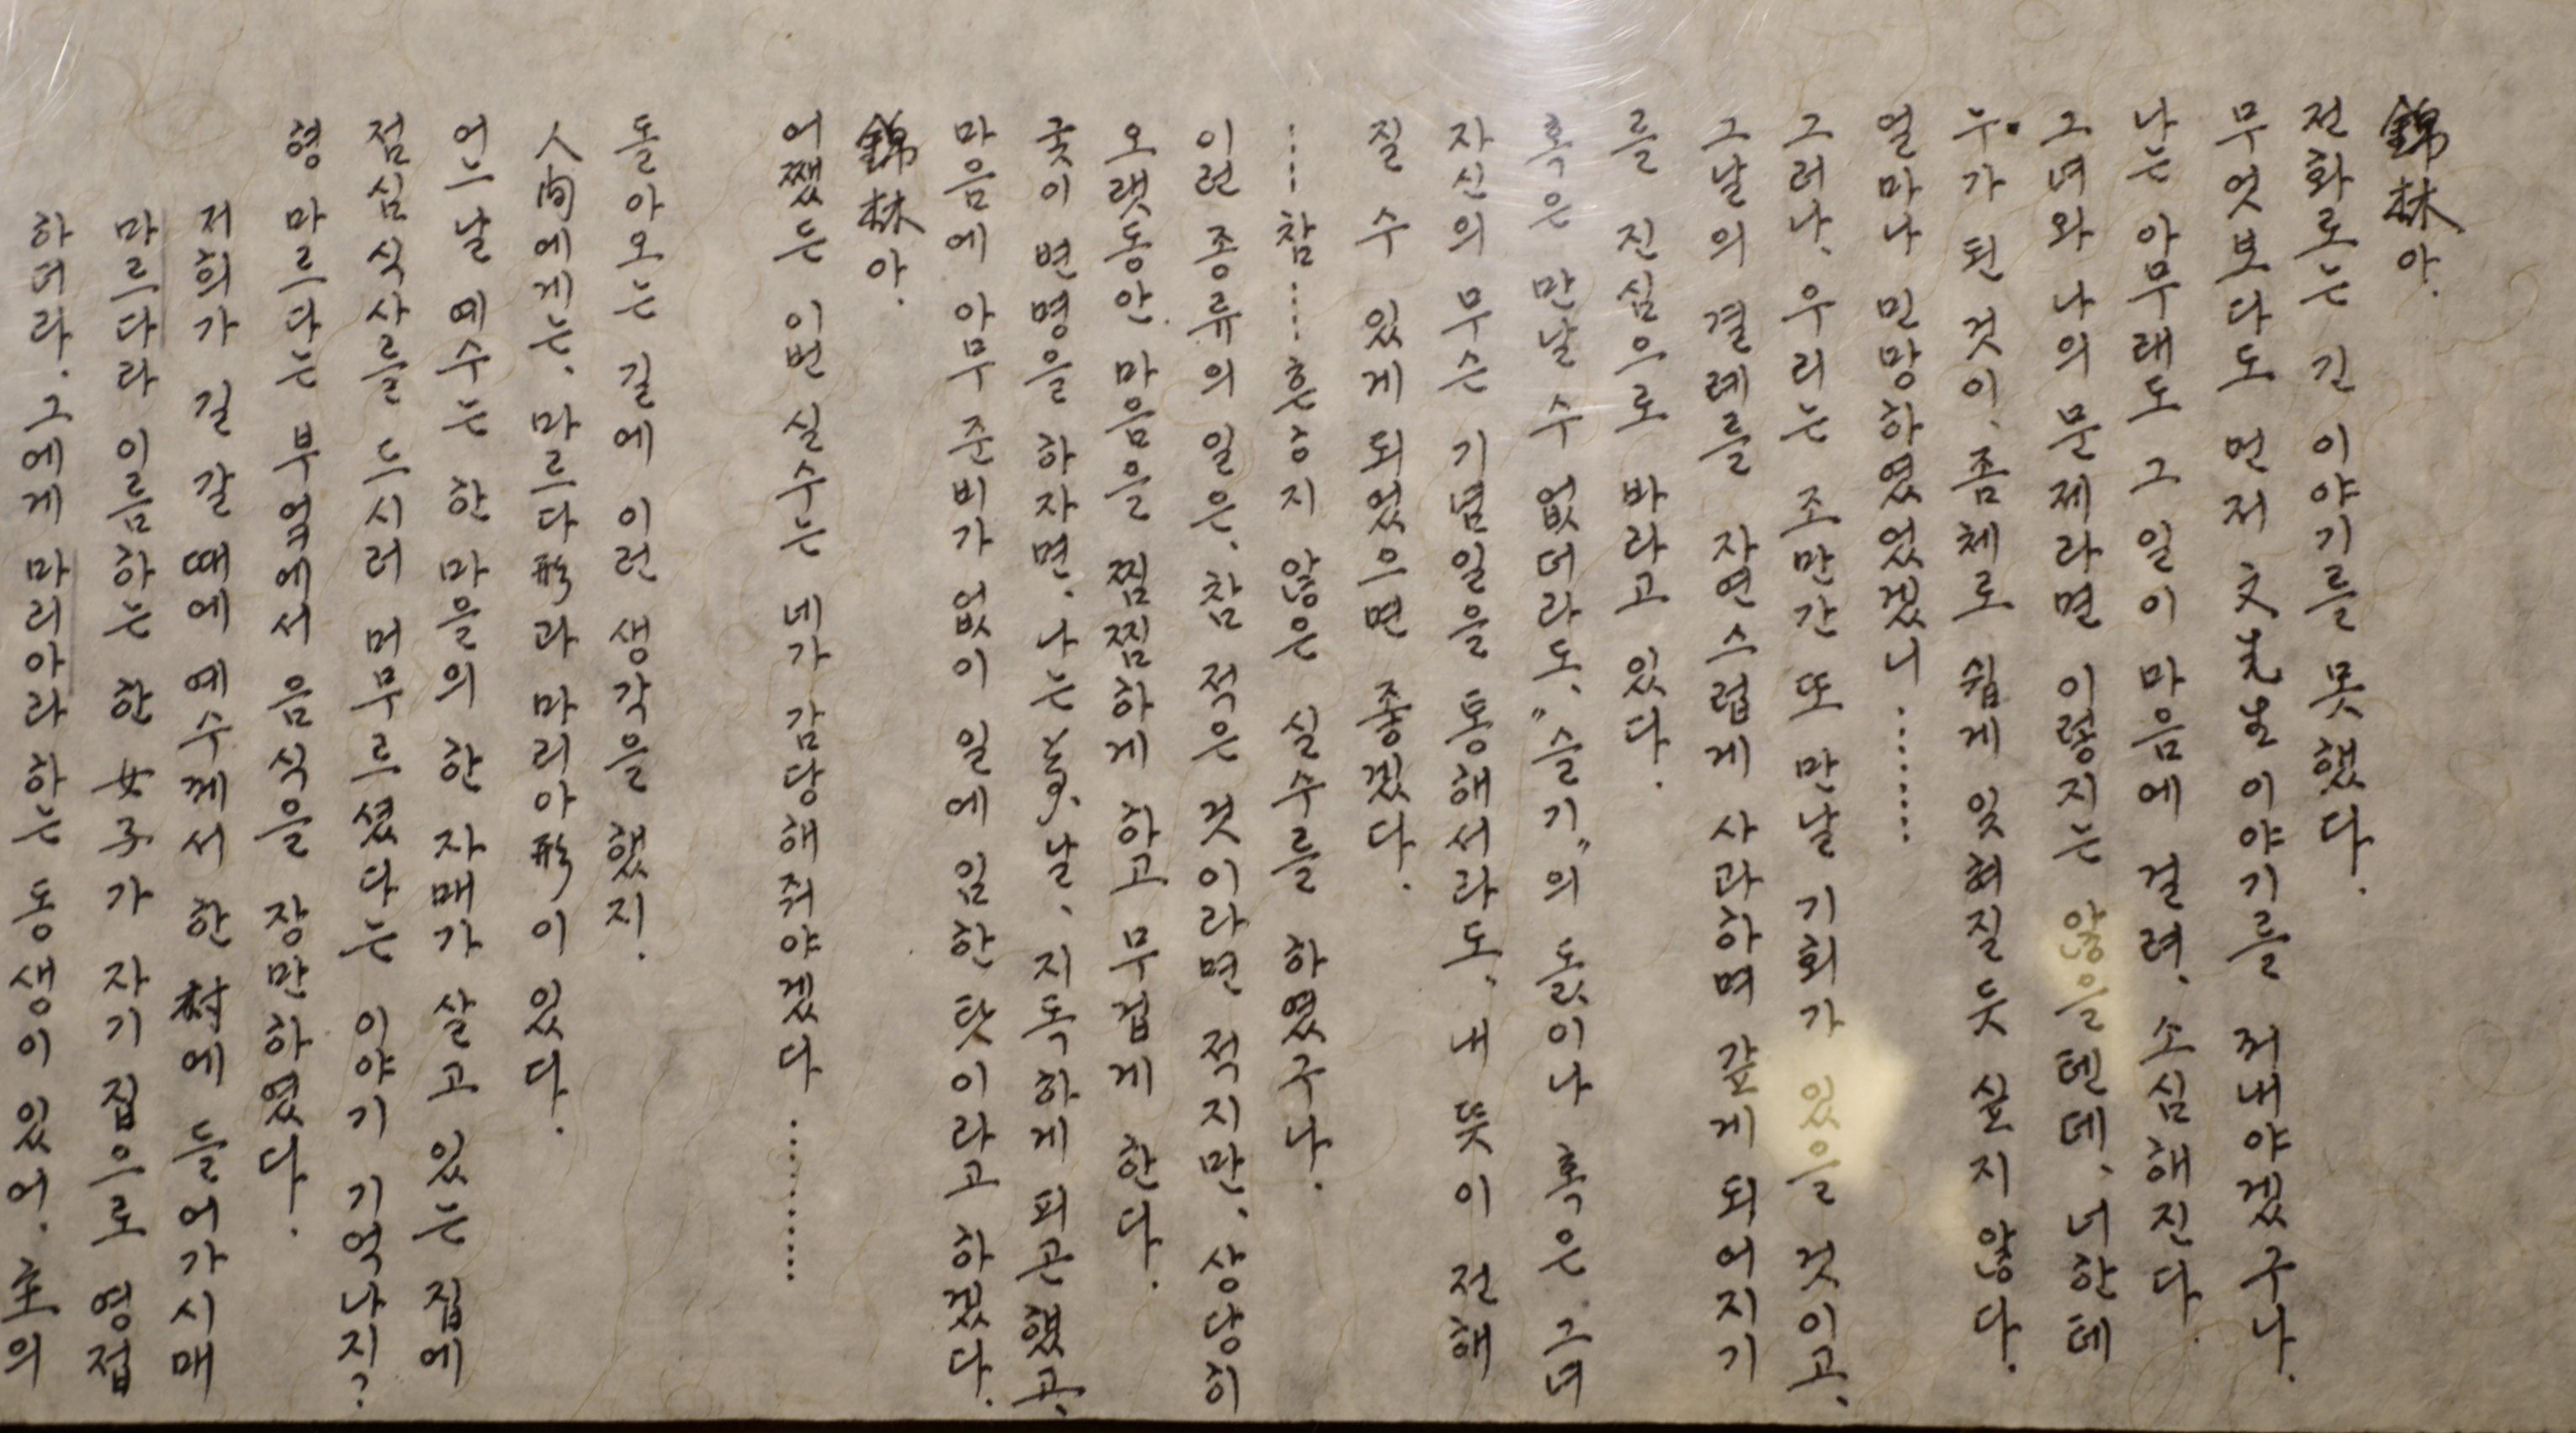 錦林아.
전화로는 긴 이야기를 못 했다.
무엇보다도 먼저 文 이야기를 꺼내야겠구나.
나는 아무래도 그 일이 마음에 걸려, 소심해진다.
그녀와 나의 문제라면 이렇지는 않을텐데, 너한테
누가 된 것이, 좀체로 쉽게 잊혀질 듯 싶지 않다.
얼마나 민망하였었겠니 ........
그러나, 우리는 조만간 또 만날 기회가 있을 것이고,
그날의 결례를 자연스럽게 사과하며 갚게 되어지기
를 진심으로 바라고 있다.
혹은 만날 수 없더라도, "슬기"의 돐이나 혹은 그녀
자신의 무슨 기념일을 통해서라도, 내 뜻이 전해
질 수 있게 되었으면 좋겠다.
....참....흔하지 않은 실수를 하였구나.
이런 종류의 일은, 참 적은 것이라면 적지만, 상당히
오랫동안 마음을 찜찜하게 하고 무겁게 한다.
굳이 변명을 하자면, 나는 날, 지독하게 피곤했고,
마음에 아무 준비가 없이 일에 임한 탓이라고 하겠다.
錦林아.
어쨌든 이번 실수는 네가 감당해 줘야겠다 ..........
돌아오는 길에 이런 생각을 했지.
人間에게는, 마르다形과 마리아形이 있다.
어느날 예수는 한 마을의 한 자매가 살고 있는 집에
점심식사를 드시러 머무르셨다는 이야기 기억나지?
형 마르다는 부엌에서 음식을 장만하였다.
저희가 길 갈 때에 예수께서 한 村에 들어가시매
마르다라 이름하는 한 女子가 자기 집으로 영접
하더라. 그에게 마리아라 하는 동생이 있어. 主의